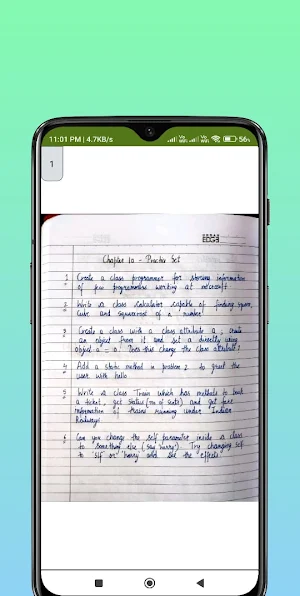 11:01 PM | 4.7KB/s
56%
1
Chapter 10 - Practice Set
1 Create a class programmer for storing information
of few programmers working at microsoft
2 Write a class calculator capable of finding square,
Cube and squareroot of a number
3 Create a class with a class attribute a; create
an object from it and set a directly using
object.a = 0. Does this change the class attribute?
4 Add a static method in problem 2 to greet the
user with hello
5 Write a class Train which has methods to book
a ticket, get status (no of seats) and get fare
information of trains running under Indian
Railways
6 Can you change the self parameter inside a class
to something else (say 'harry') Try changing self
to 'slf' or 'harry' and see the effects